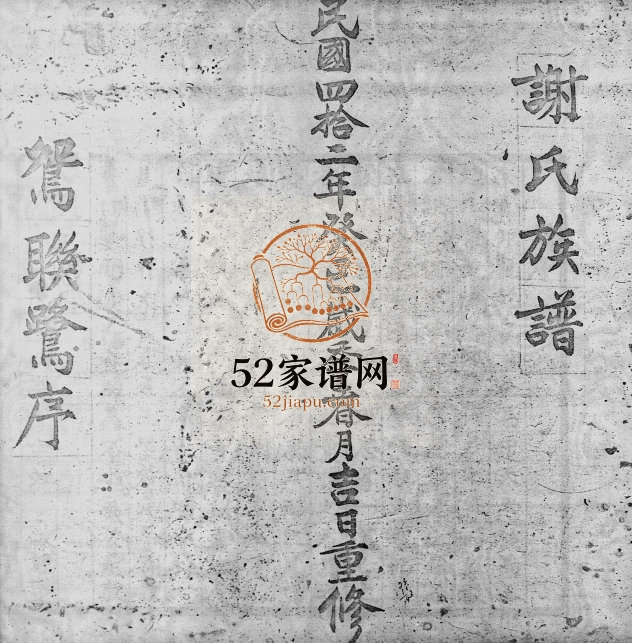 謝氏族譜
民國四拾二年癸巳歲季春月吉日重修
鴛聯鷺序
52家谱网
52jiapu.com